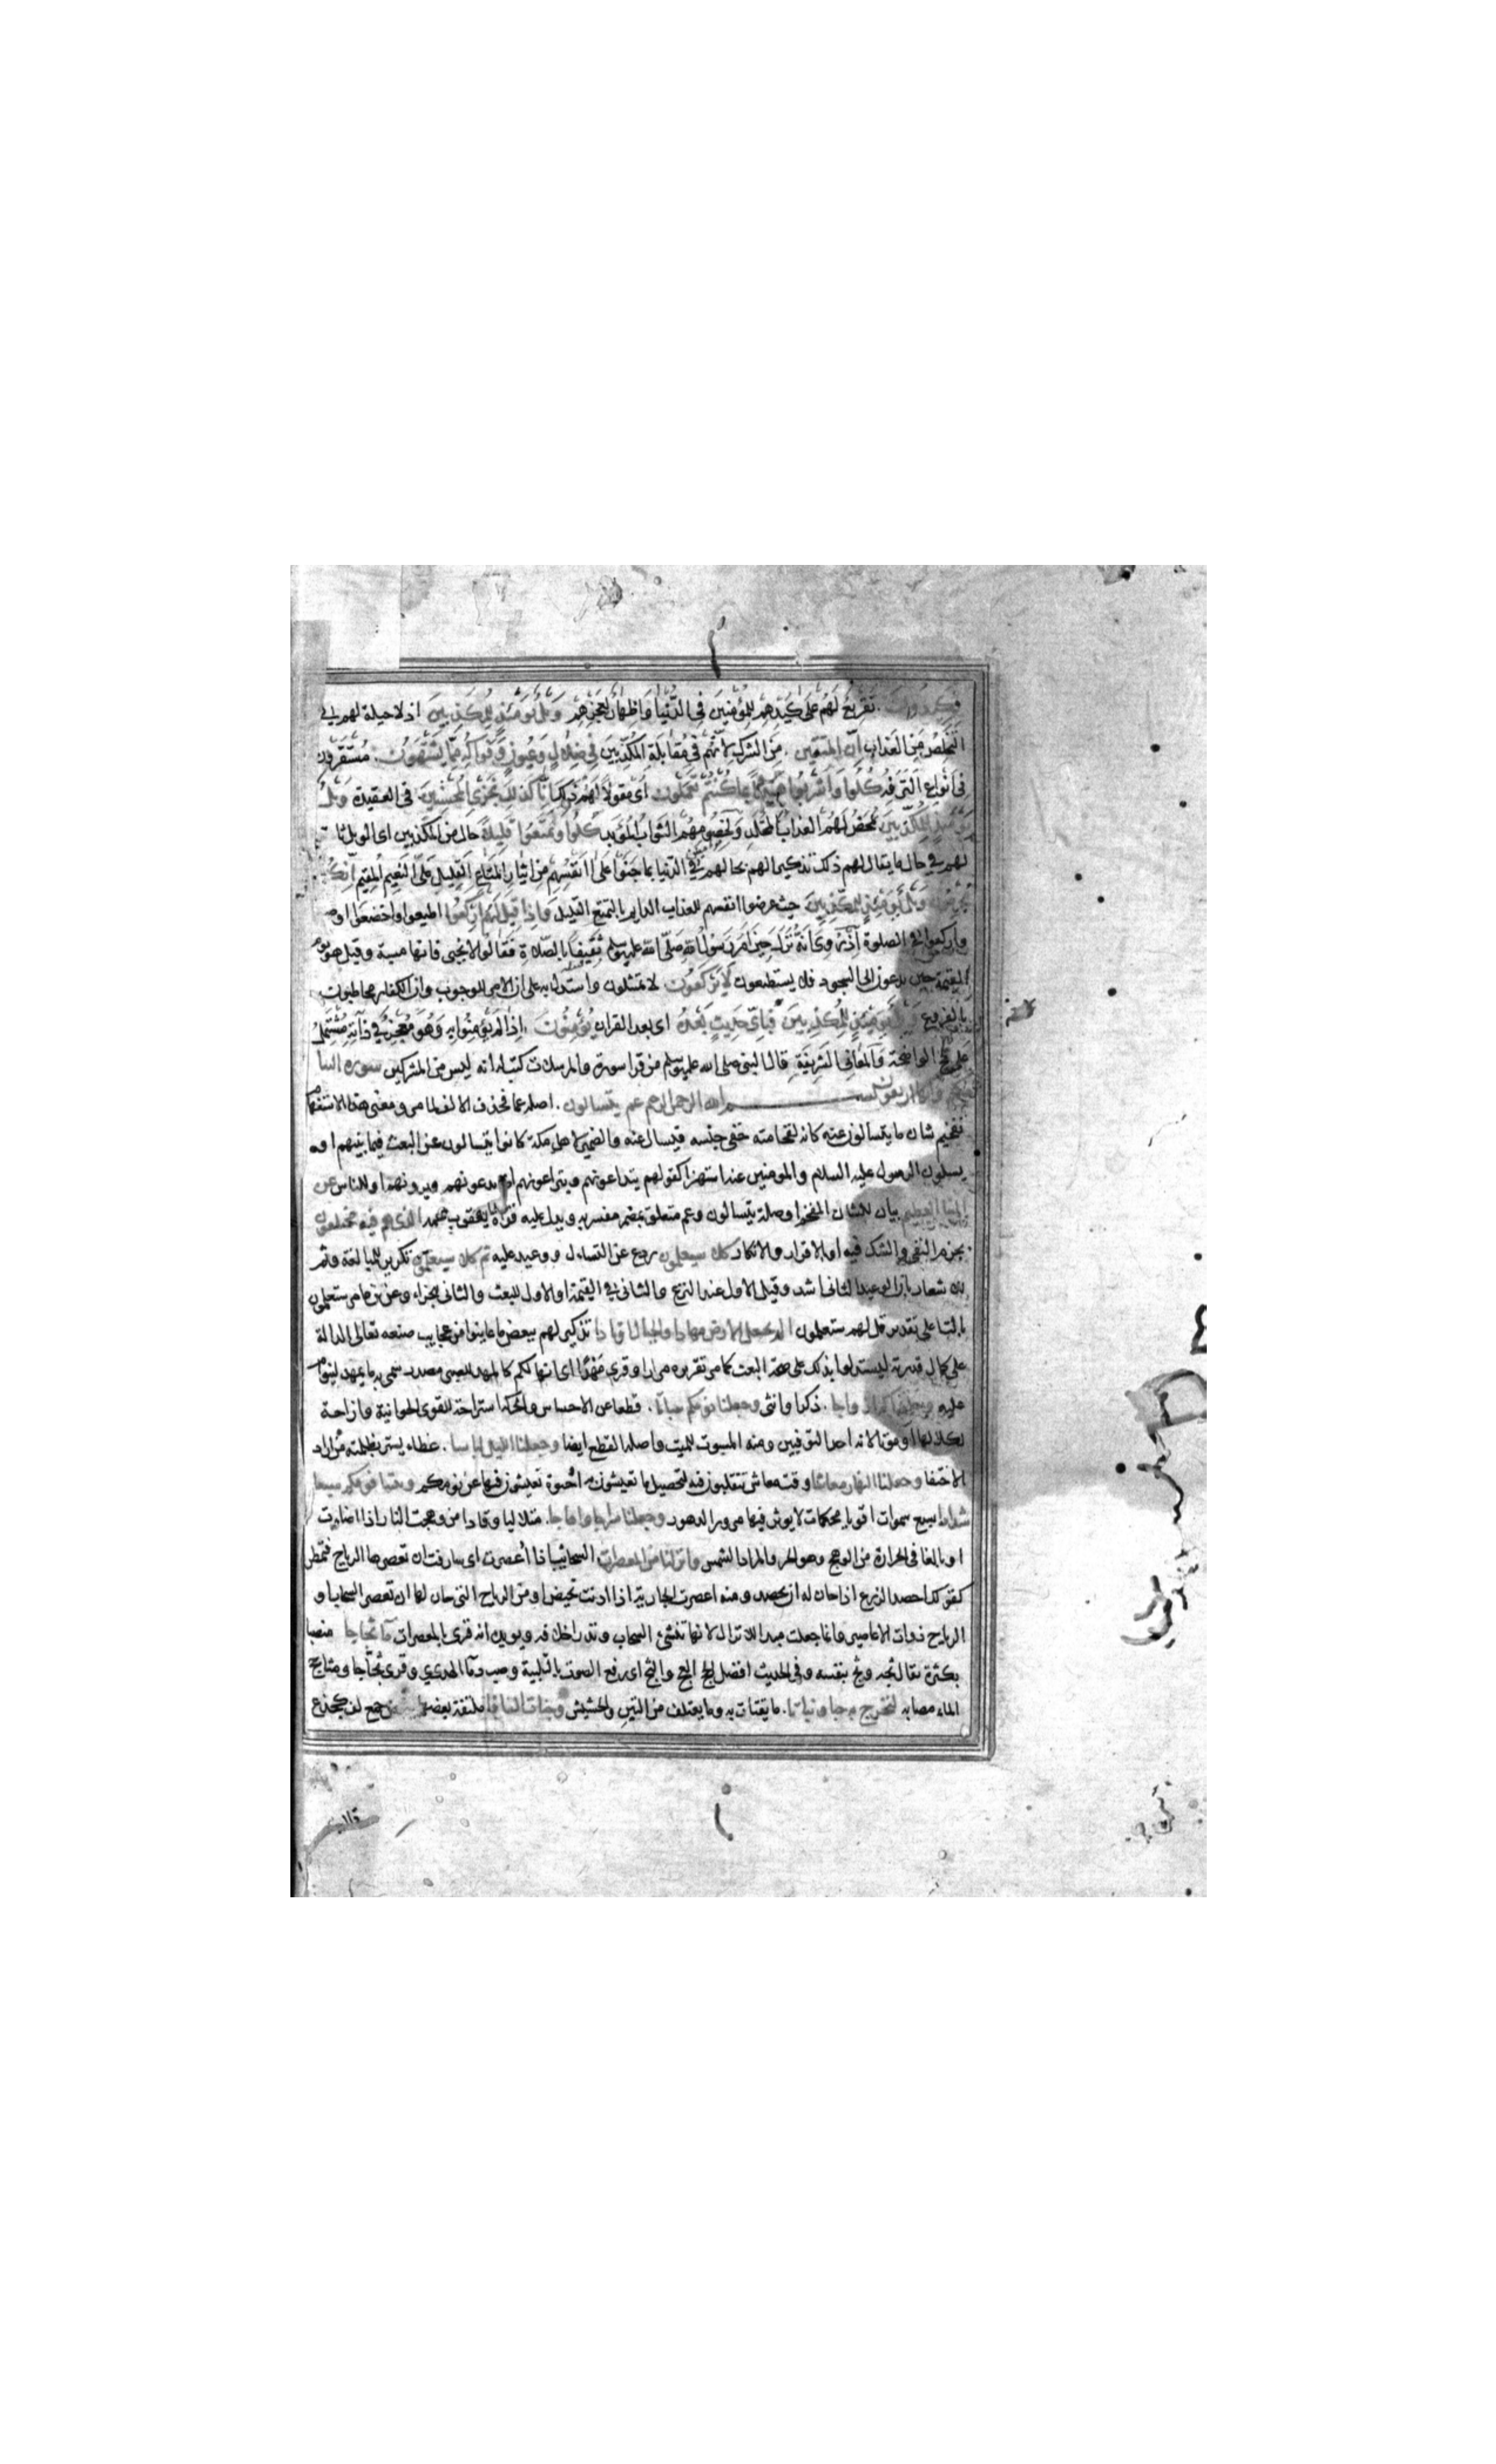 فكيدون. تقريع لهم على كيدهم للمؤمنين في الدنيا واظهار لعجزهم ويل يومئذ للمكذبين اذ لا حيلة لهم في
التخلص من العذاب ان المتقين. من الشرك لانهم في مقابلة المكذبين في ظلال وعيون وفواكه مما يشتهون. مستقرون
في انواع الترفه كلوا واشربوا هنيئا بما كنتم تعملون اي مقولا لهم ذلك انا كذلك نجزي المحسنين في العقيدة ويل
يومئذ للمكذبين يمحض لهم العذاب المخلد ولخصومهم الثواب المؤبد كلوا وتمتعوا قليلا حال من المكذبين اي الويل ثابت
لهم في حال ما يقال لهم ذلك تذكيرا لهم بحالهم في الدنيا بما جنوا على انفسهم من ايثار المتاع القليل على النعيم المقيم انكم
مجرمون ويل يومئذ للمكذبين حيث عرضوا انفسهم للعذاب الدايم بالتمتع القليل واذا قيل لهم اركعوا اطيعوا واخضعوا او صلوا
واركعوا في الصلوة اذ روي انه نزل حين امر رسول الله صلى الله عليه وسلم ثقيفا بالصلاة فقالوا لا نجبي فانها مسبة وقيل هو يوم
القيمة حين يدعون الى السجود فلا يستطيعون لا يركعون لا يمتثلون واستدل به على ان الامر للوجوب وان الكفار مخاطبون
بالفروع ويل يومئذ للمكذبين فباي حديث بعده اي بعد القران يؤمنون. اذا لم يؤمنوا به وهو معجز في ذاته مشتمل
على الحجج الواضحة والمعاني الشريفة قال النبي صلى الله عليه وسلم من قرا سورة والمرسلات كتب له انه ليس من المشركين سورة النبا
اربعون بسم الله الرحمن الرحيم عم يتسالون. اصله عما فحذف الالف لما مر ومعنى هذا الاستفهام
تفخيم شان ما يتسالون عنه كانه لفخامته خفي جنسه فيسال عنه والضمير لاهل مكة كانوا يتسالون عن البعث فيما بينهم او
يسلون الرسول عليه السلام والمومنين عنه استهزا كقولهم يتداعونهم ويتراءونهم اي يدعونهم ويرونهم او للناس عن
النبا العظيم بيان للشان المفخم او صلة يتسالون وعم متعلق بمضمر مفسر به ويدل عليه قراة يعقوب عمه الذي هم فيه مختلفون
بجزم النفي والشك فيه او بالاقرار والانكار كلا سيعلمون ردع عن التساءل ووعيد عليه ثم كلا سيعلمون تكرير للمبالغة وثم
للاشعار بان الوعيد الثاني اشد وقيل الاول عند النزع والثاني في القيمة او الاول للبعث والثاني للجزاء وعن ابن عامر ستعلمون
بالتا على تقدير قل لهم ستعلمون الم نجعل الارض مهادا والجبال اوتادا تذكير لهم ببعض ما عاينوا من عجايب صنعه تعالى الدالة
على كمال قدرته ليستدلوا بذلك على صحة البعث كما مر تقريره مرارا وقرى مهدا اي انها لكم كالمهد للصبي مصدر سمي به ما يمهد لينوم
عليه وخلقناكم ازواجا. ذكرا وانثى وجعلنا نومكم سباتا. قطعا عن الاحساس والحركة استراحة للقوى الحيوانية وازاحة
لكلالها او موتا لانه احد التوفيين ومنه المسبوت للميت واصله القطع ايضا وجعلنا الليل لباسا. غطاء يستتر بظلمته من اراد
الاختفا وجعلنا النهار معاشا وقت معاش تتقلبون فيه لتحصيل ما تعيشون به او حيوة تعيشون فيها عن نومكم وبنينا فوقكم سبعا
شدادا سبع سموات اقويا محكمات لا يوثر فيها مرور الدهور وجعلنا سراجا وهاجا. متلاليا وقادا من وهجت النار اذا اضايت
او بالغا في الحرارة من الوهج وهو الحر والمراد الشمس وانزلنا من المعصرات السحائب اذا أعصرت اي شارفت ان تعصرها الرياح فتمطر
كقولك احصد الزرع اذا حان له ان يحصد ومنه اعصرت الجارية اذا ادنت تحيض او من الرياح التي حان لها ان تعصر السحاب او
الرياح ذوات الاعاصير وانما جعلت مبدا للانزال لانها تنشئ السحاب وتدر اخلافه ويويده انه قرى بالمعصرات ماء ثجاجا منصبا
بكثرة يقال ثجه وثج بنفسه وفي الحديث افضل الحج العج والثج اي رفع الصوت بالتلبية وصب دماء الهدي وقرى ثجاجا ومثاجج
الماء مصابه لنخرج به حبا ونباتا. ما يقتات به وما يعتلف من التبن والحشيش وجنات الفافا ملتفة بعضها ببعض جمع لف كجذع
قالب